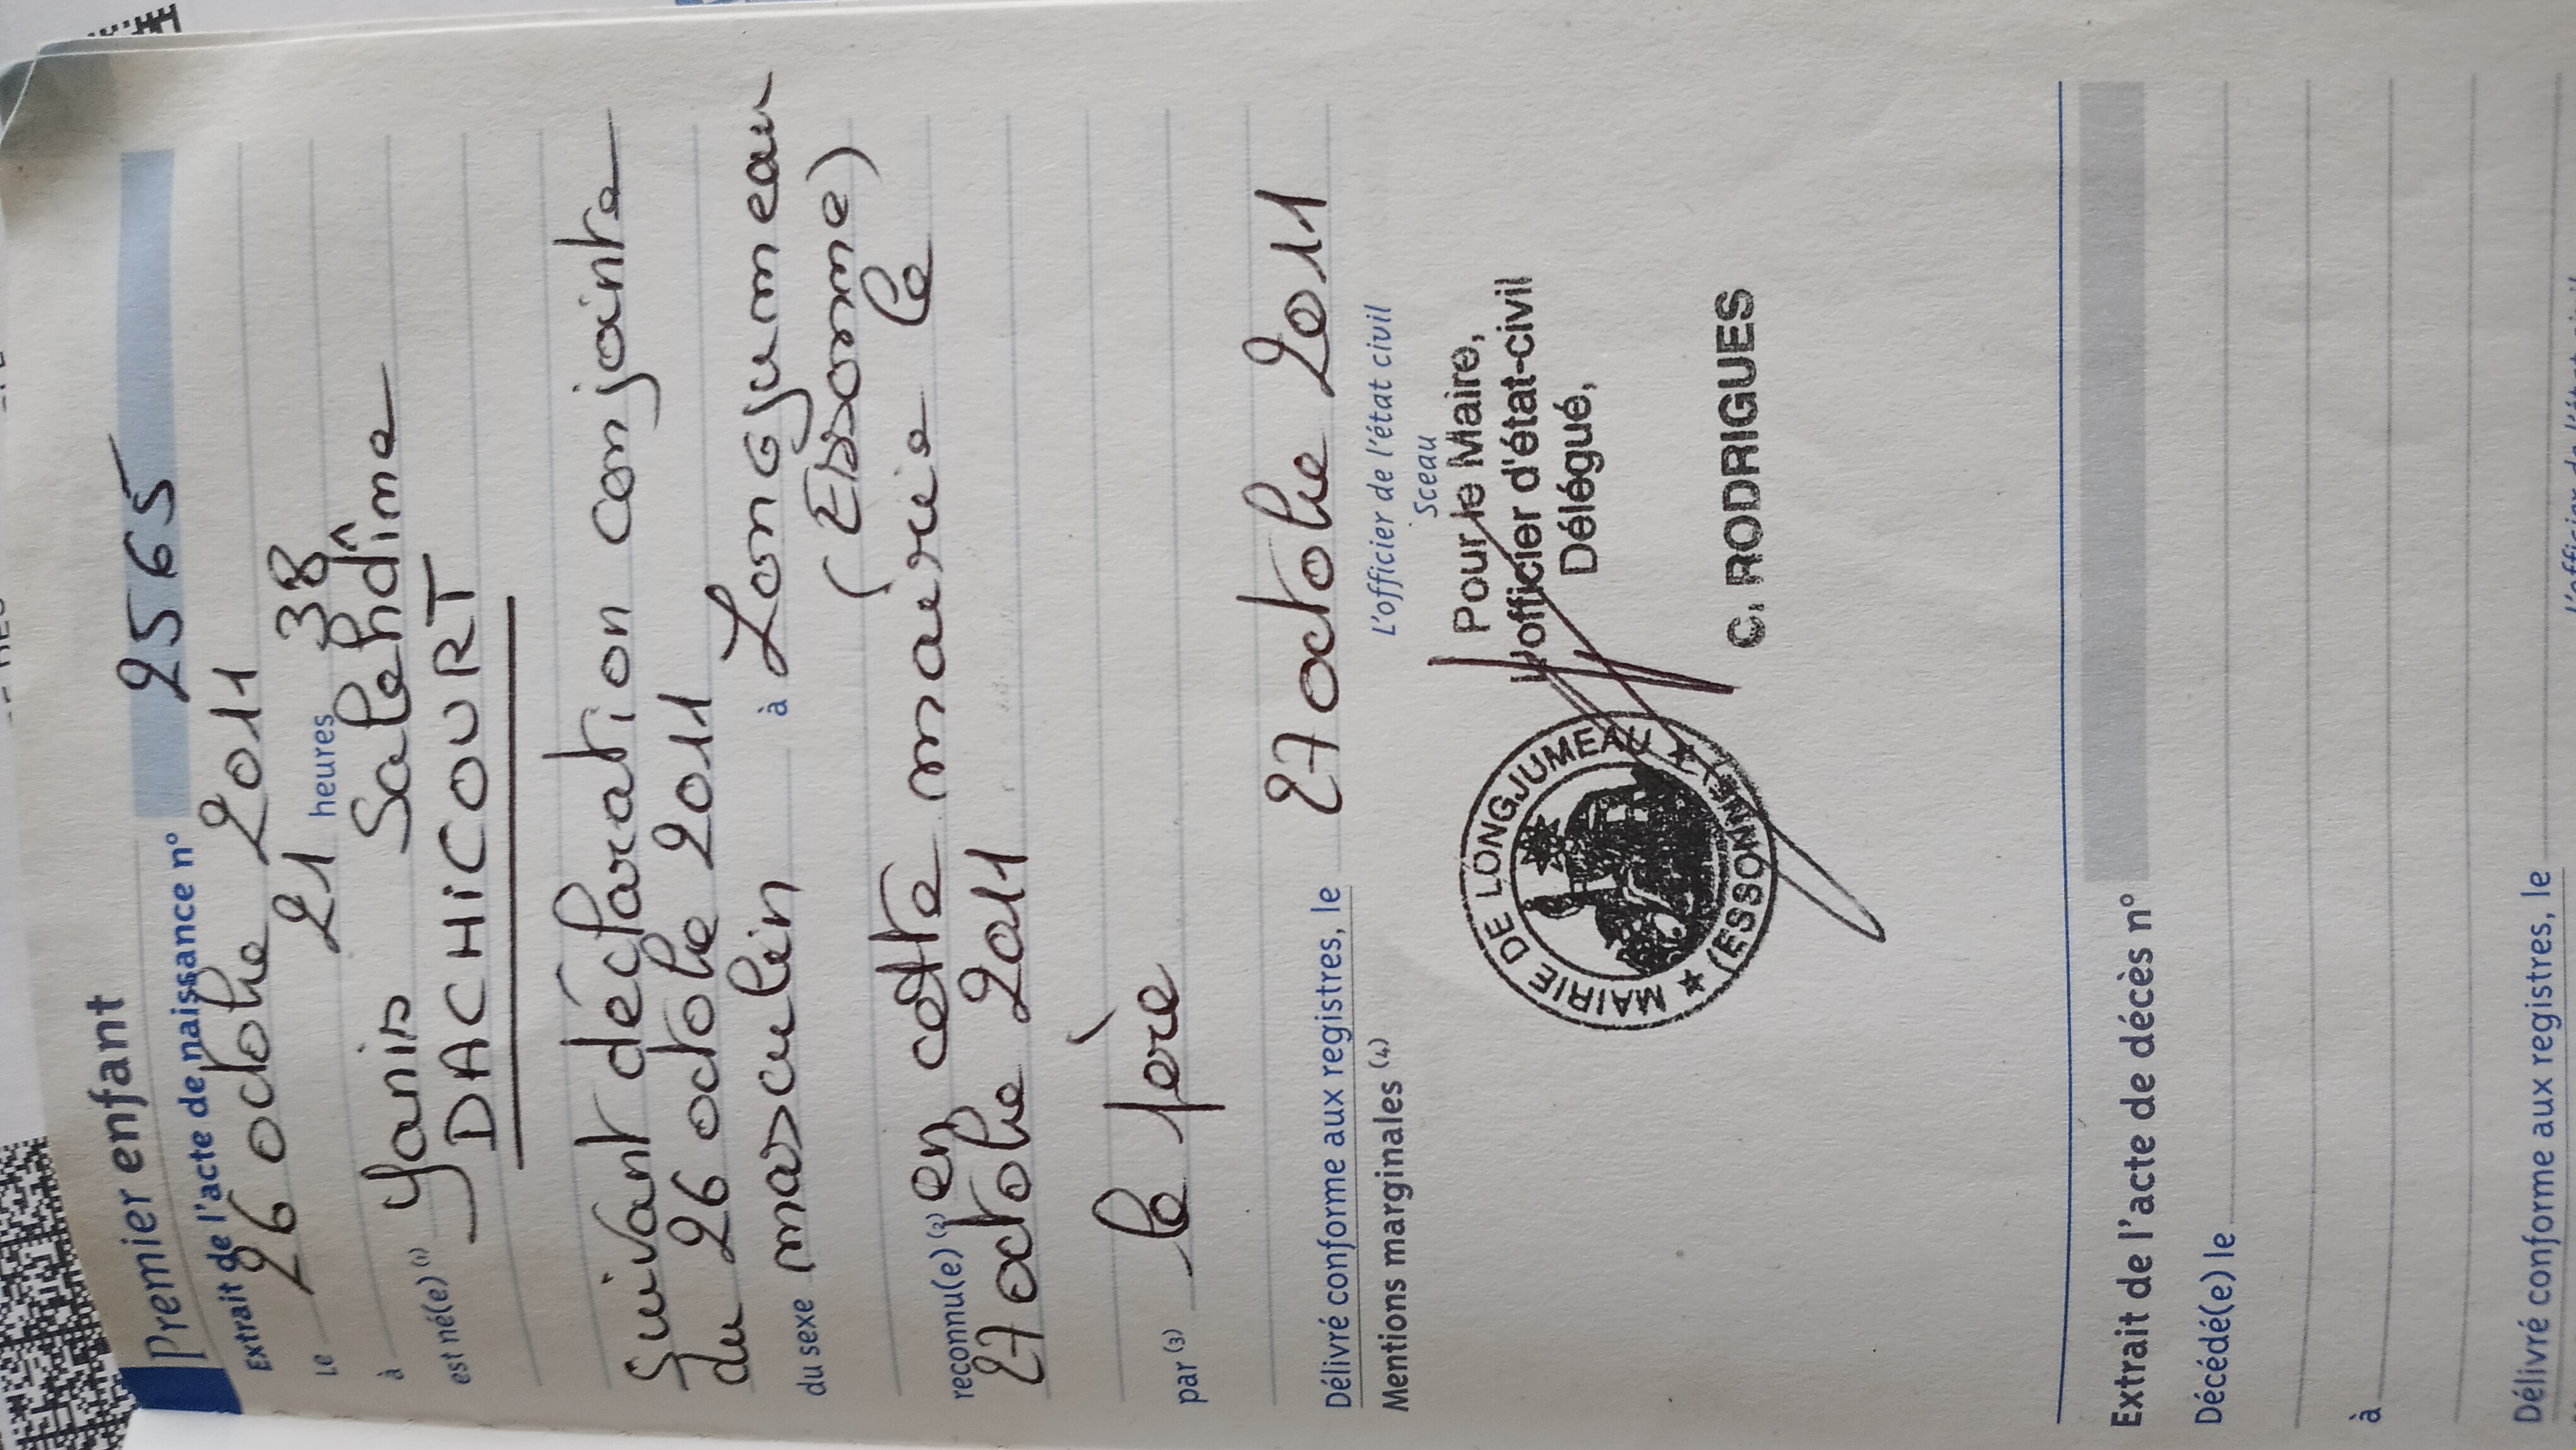 Premier enfant
Extrait de l'acte de naissance n° 2565
Le 26 octobre 2011
à 21 heures 38
est né(e) (1) Yanis Salehdîne
DACHICOURT
Suivant déclaration conjointe
du 26 octobre 2011
du sexe masculin à Longjumeau
(Essonne)
reconnu(e) (2) en cette mairie le
27 octobre 2011
par (3) le père
Délivré conforme aux registres, le 27 octobre 2011
Mentions marginales (4)
L'officier de l'état civil
Sceau
Pour le Maire,
L'officier d'état-civil
Délégué,
C. RODRIGUES
MAIRIE DE LONGJUMEAU
(ESSONNE)
Extrait de l'acte de décès n°
Décédé(e) le
à
Délivré conforme aux registres, le
L'officier de l'état civil